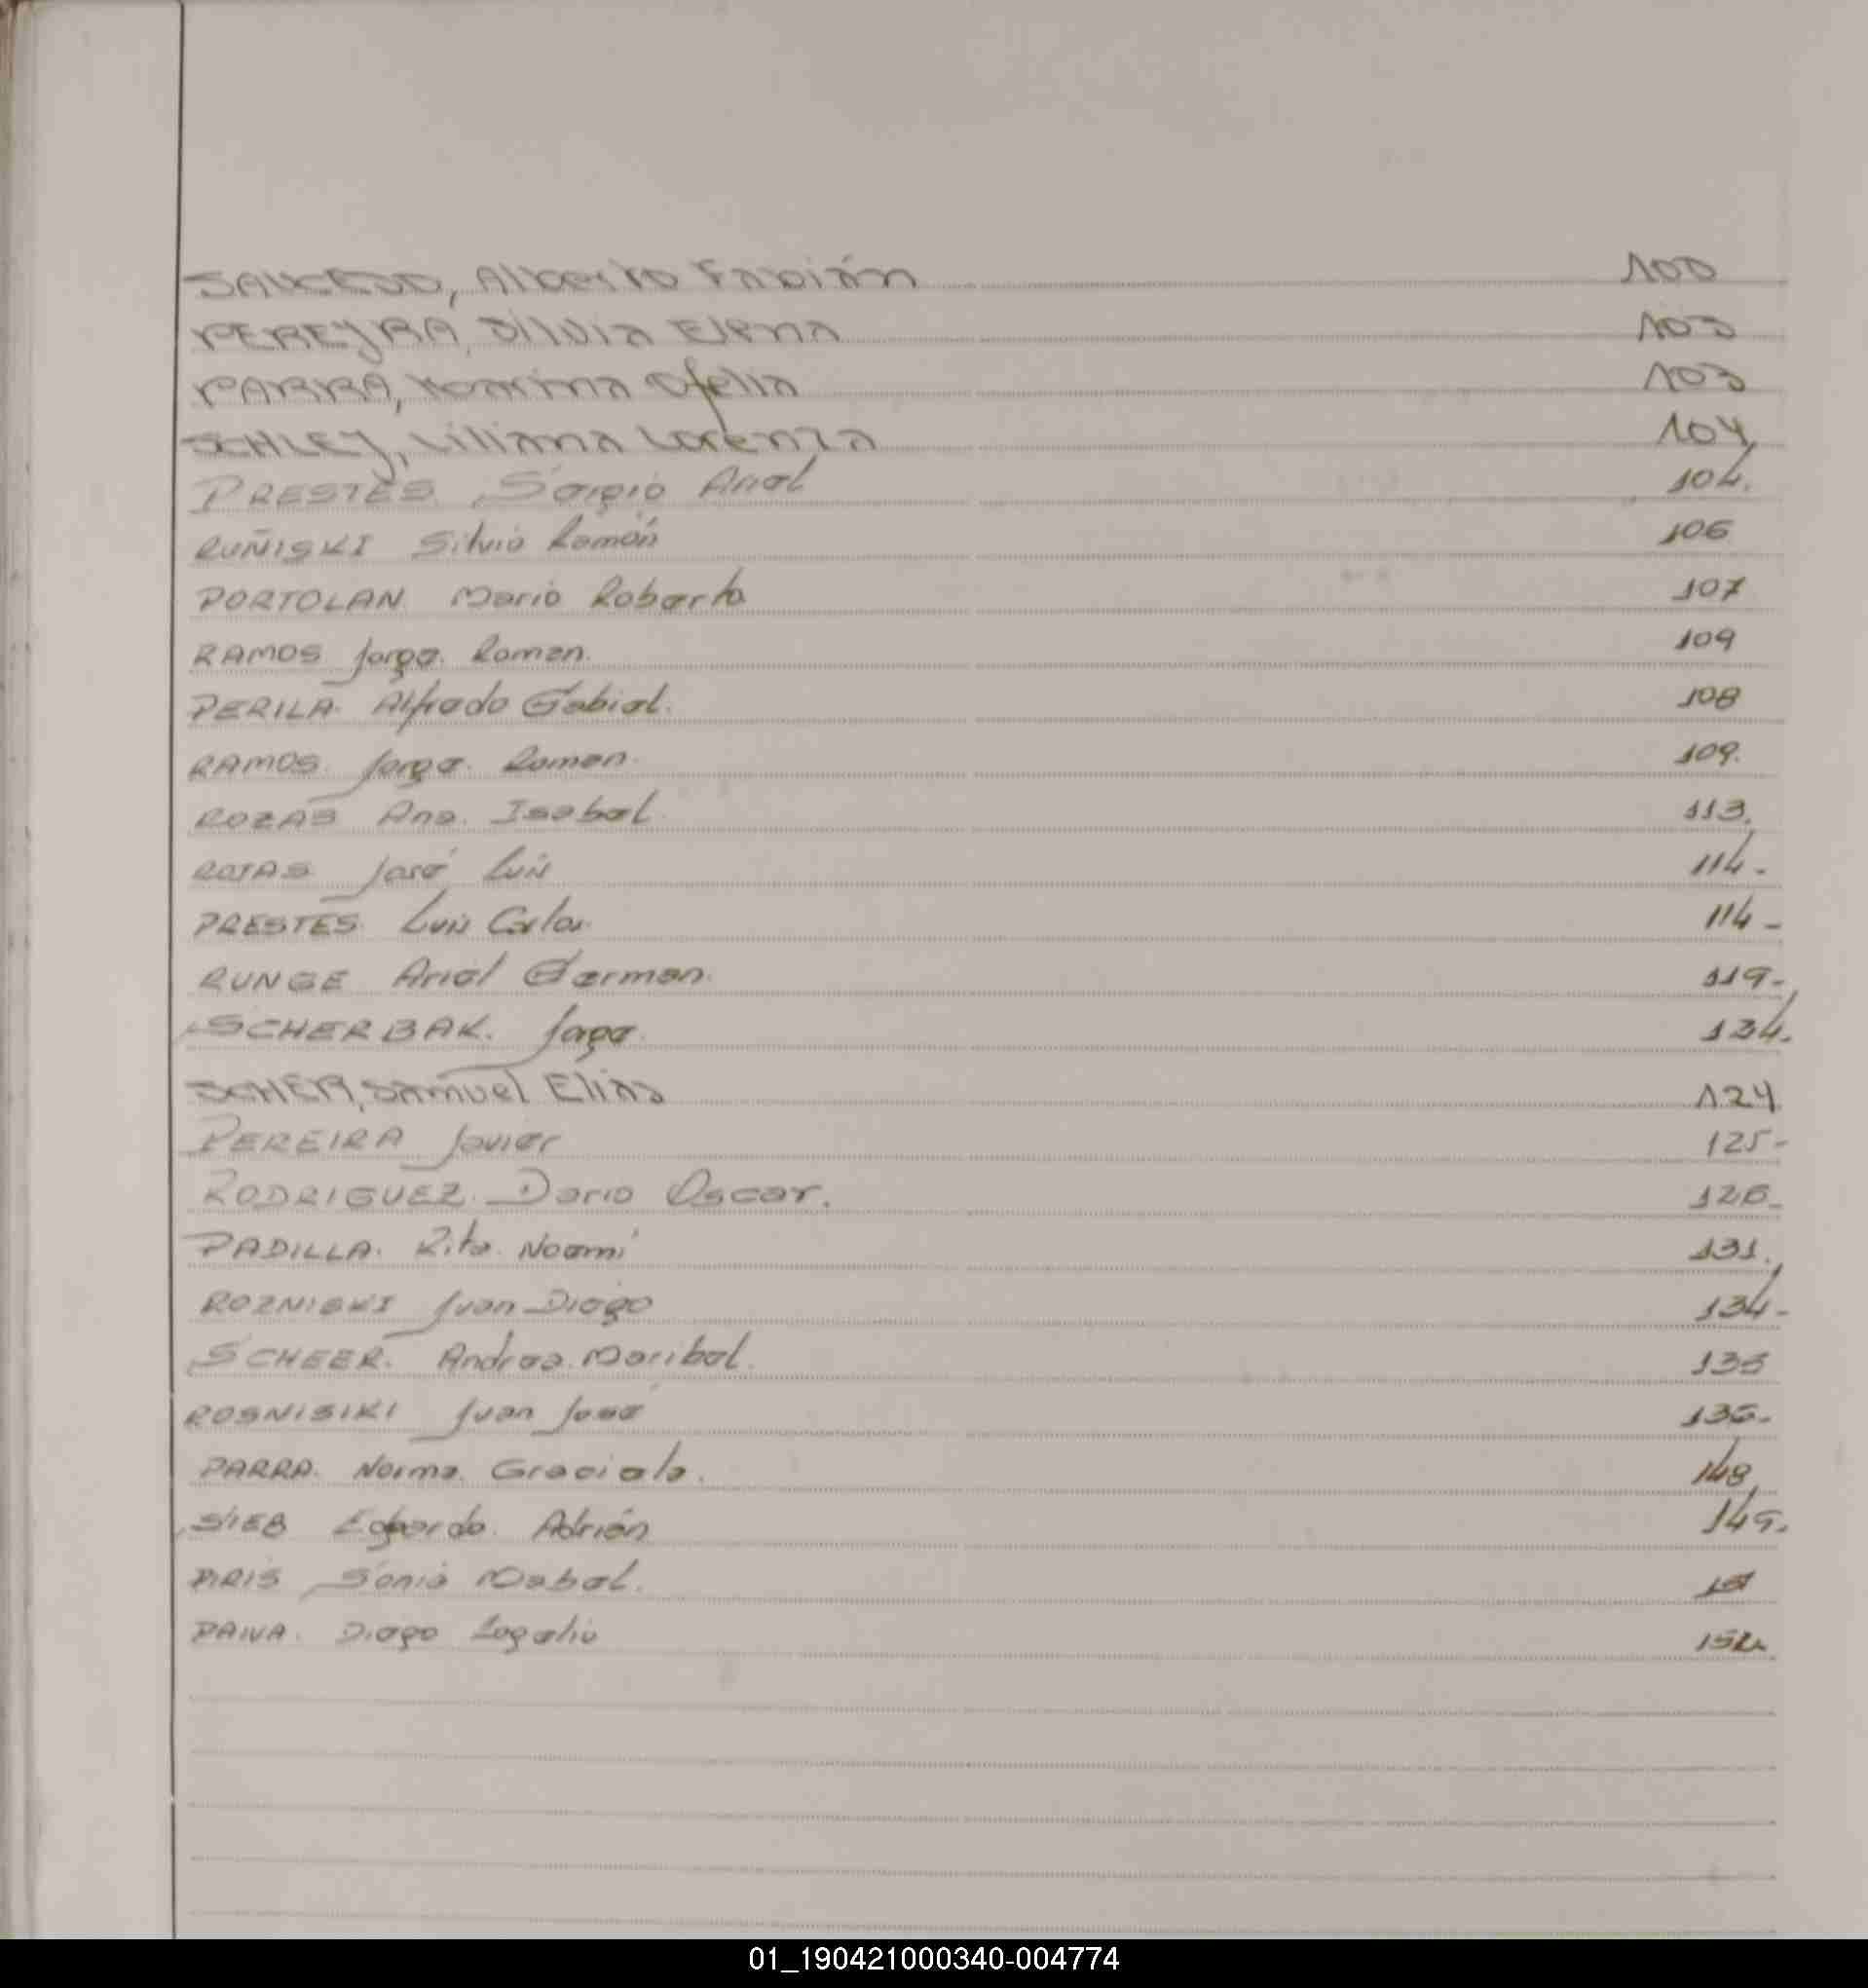 SAUCEDO, Alberto Fabián 100
PEREYRA, Silvia Elena 103
PARRA, Romina Ofelia 103
SCHLEY, Liliana Lorenza 104
PRESTES Sergio Ariel 104.
RUÑISKI Silvio Román 106
PORTOLAN Mario Roberto 107
RAMOS Jorge. Roman. 109
PERILA. Alfredo Gabiel. 108
RAMOS. Jorge. Roman. 109.
ROZAS Ana. Isabel. 113.
ROJAS José Luis 114-
PRESTES. Luis Carlos. 114-
RUNGE Ariel German. 119-
SCHERBAK. Jorge.
SCHER, Samuel Elias 124
PEREIRA Javier 125-
RODRIGUEZ. Dario Oscar. 126-
PADILLA. Rita. Noemí 131.
ROZNISKI Juan Diego 134-
SCHEER. Andrea. Maribel. 135
ROSNISIKI Juan José 136-
PARRA. Norma. Graciela. 148
SIEB Adrián 149.
PIRIS Sonia Mabel. 151
PAIVA. Diego Rogelio 152.
01_190421000340-004774